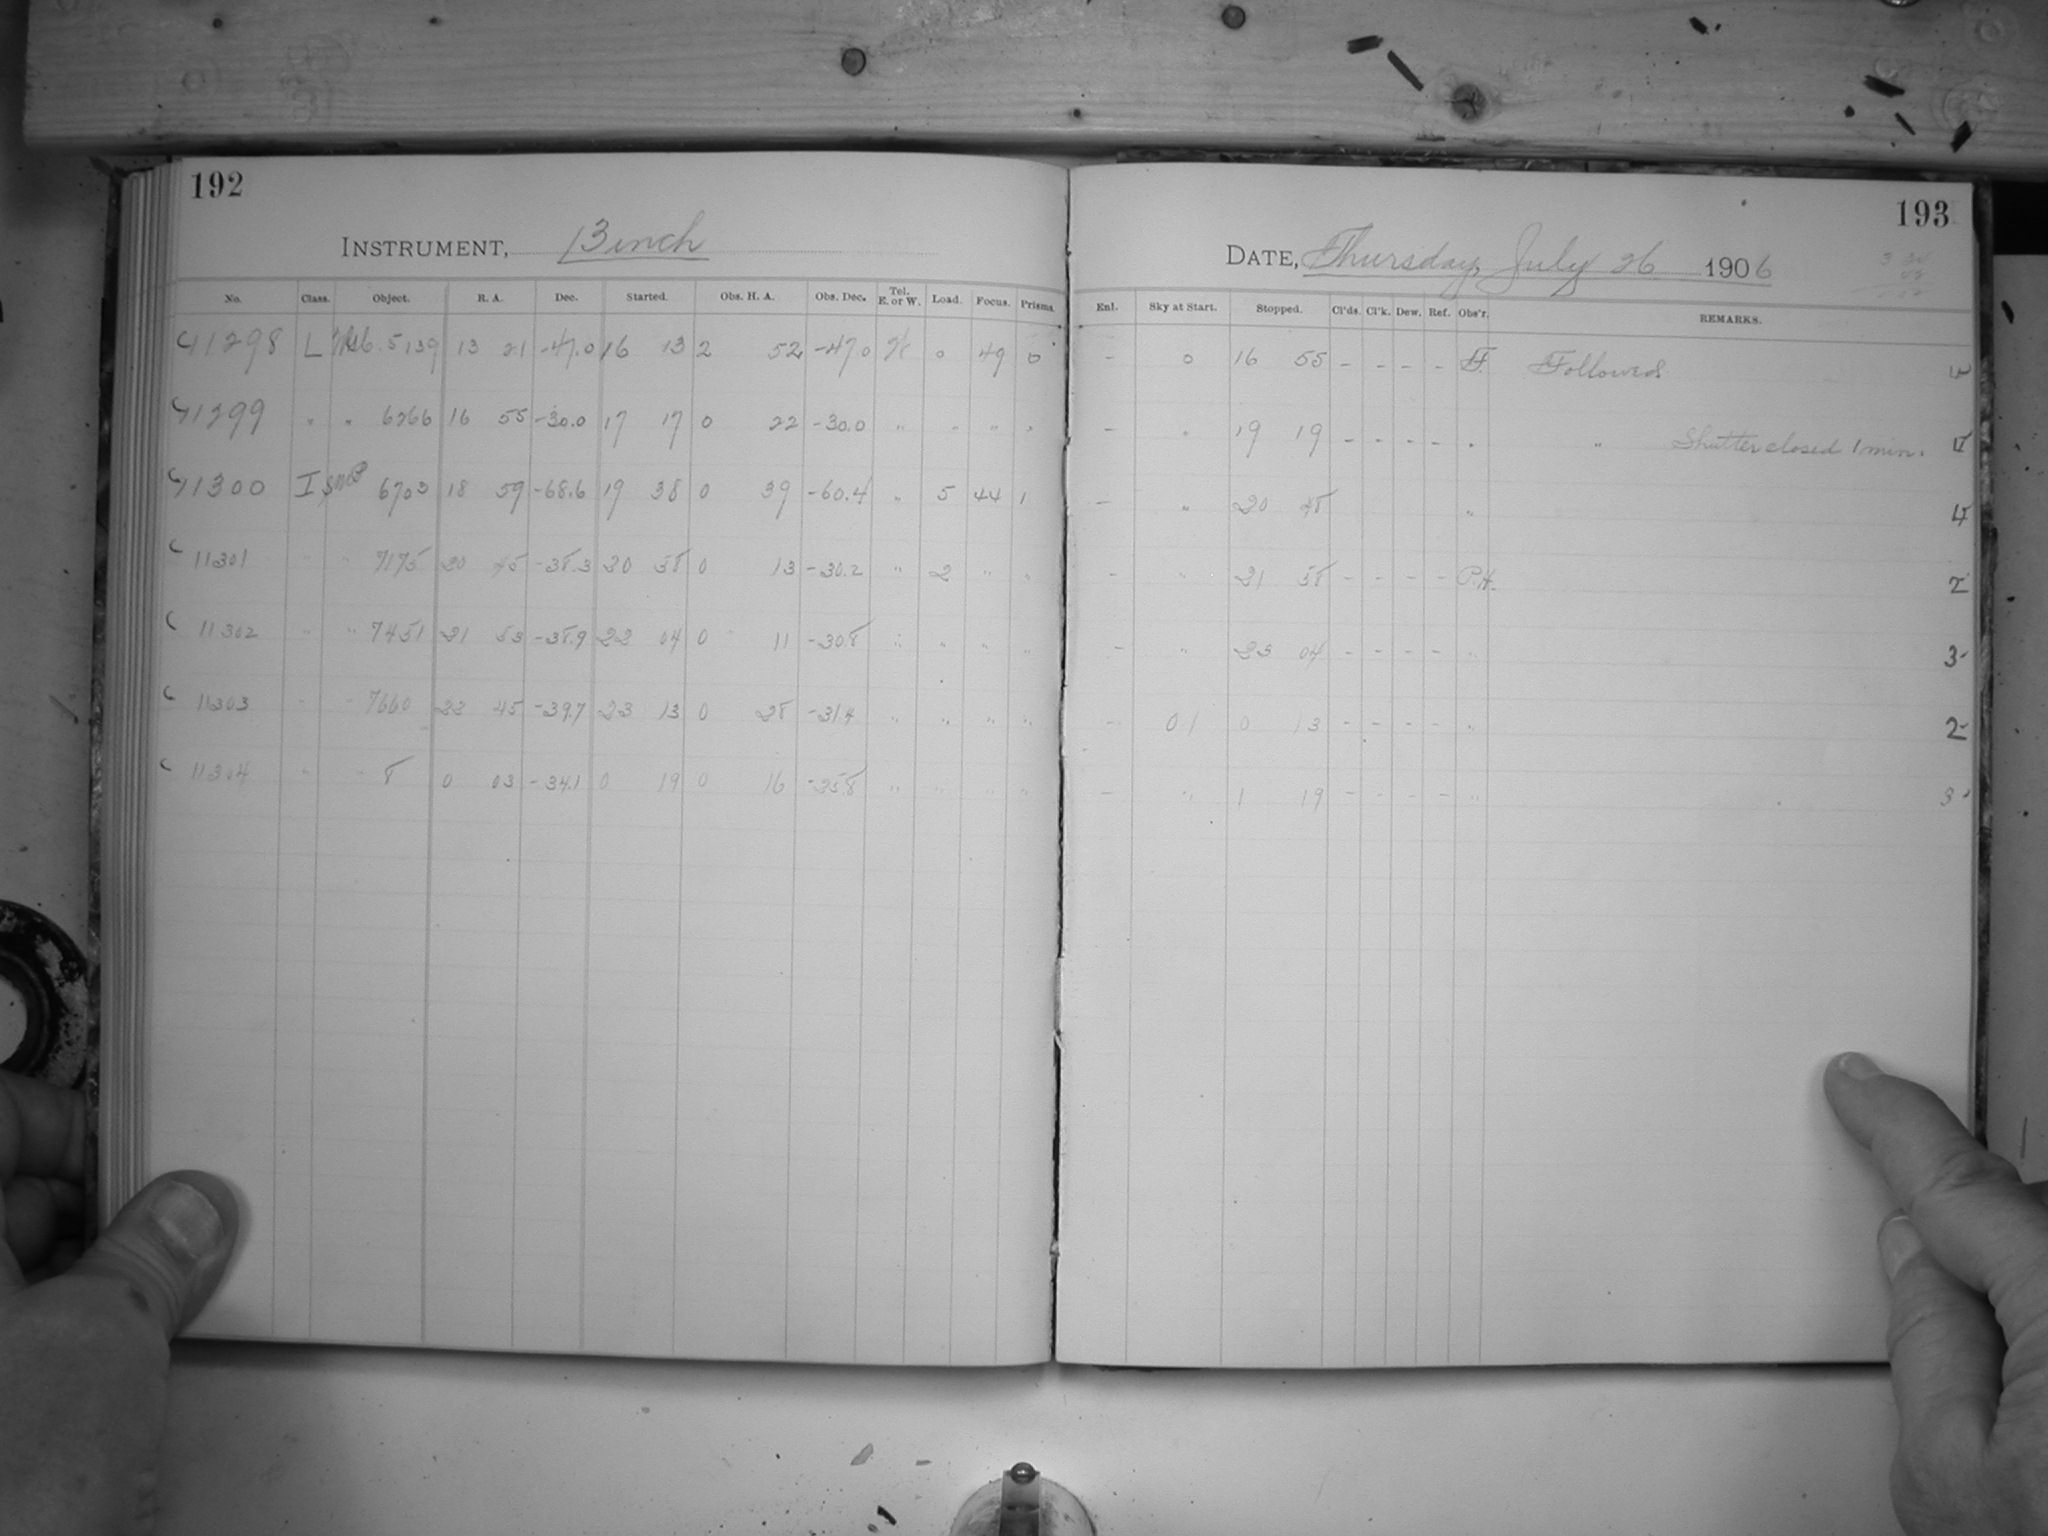 192
INSTRUMENT, 13 inch
No. Class. Object. R. A. Dec. Started. Obs. H. A. Obs. Dec. Tel. E. or W. Load. Focus. Prisms
11298 L 5139 13 21 -47.0 16 13 2 52 -47.0 W 0 49 0
11299 " " 6266 16 55 -30.0 17 17 0 22 -30.0 " " " "
11300 I 6703 18 59 -68.6 19 38 0 39 -60.4 " 5 44 1
11301 " " 7175 20 45 -38.3 20 58 0 13 -30.2 " 2 " "
11302 " " 7451 21 53 -38.9 22 04 0 11 -30.8 " " " "
11303 " " 7660 22 45 -39.7 23 13 0 28 -31.4 " " " "
11304 " " 8 0 03 -34.1 0 19 0 16 -25.8 " " " "
193
DATE, Thursday, July 26 1906
Enl. Sky at Start. Stopped. Cl'ds. Cl'k. Dew. Ref. Obs'r. REMARKS.
- 0 16 55 - - - - F. Followed
- " 19 19 - - - - " " Shutter closed 1 min. 4
- " 20 48 " 4
- " 21 58 - - - - P.H. 2
- " 23 04 - - - - " 3-
- 01 0 13 - - - - " 2-
- " 1 19 - - - - " 3-